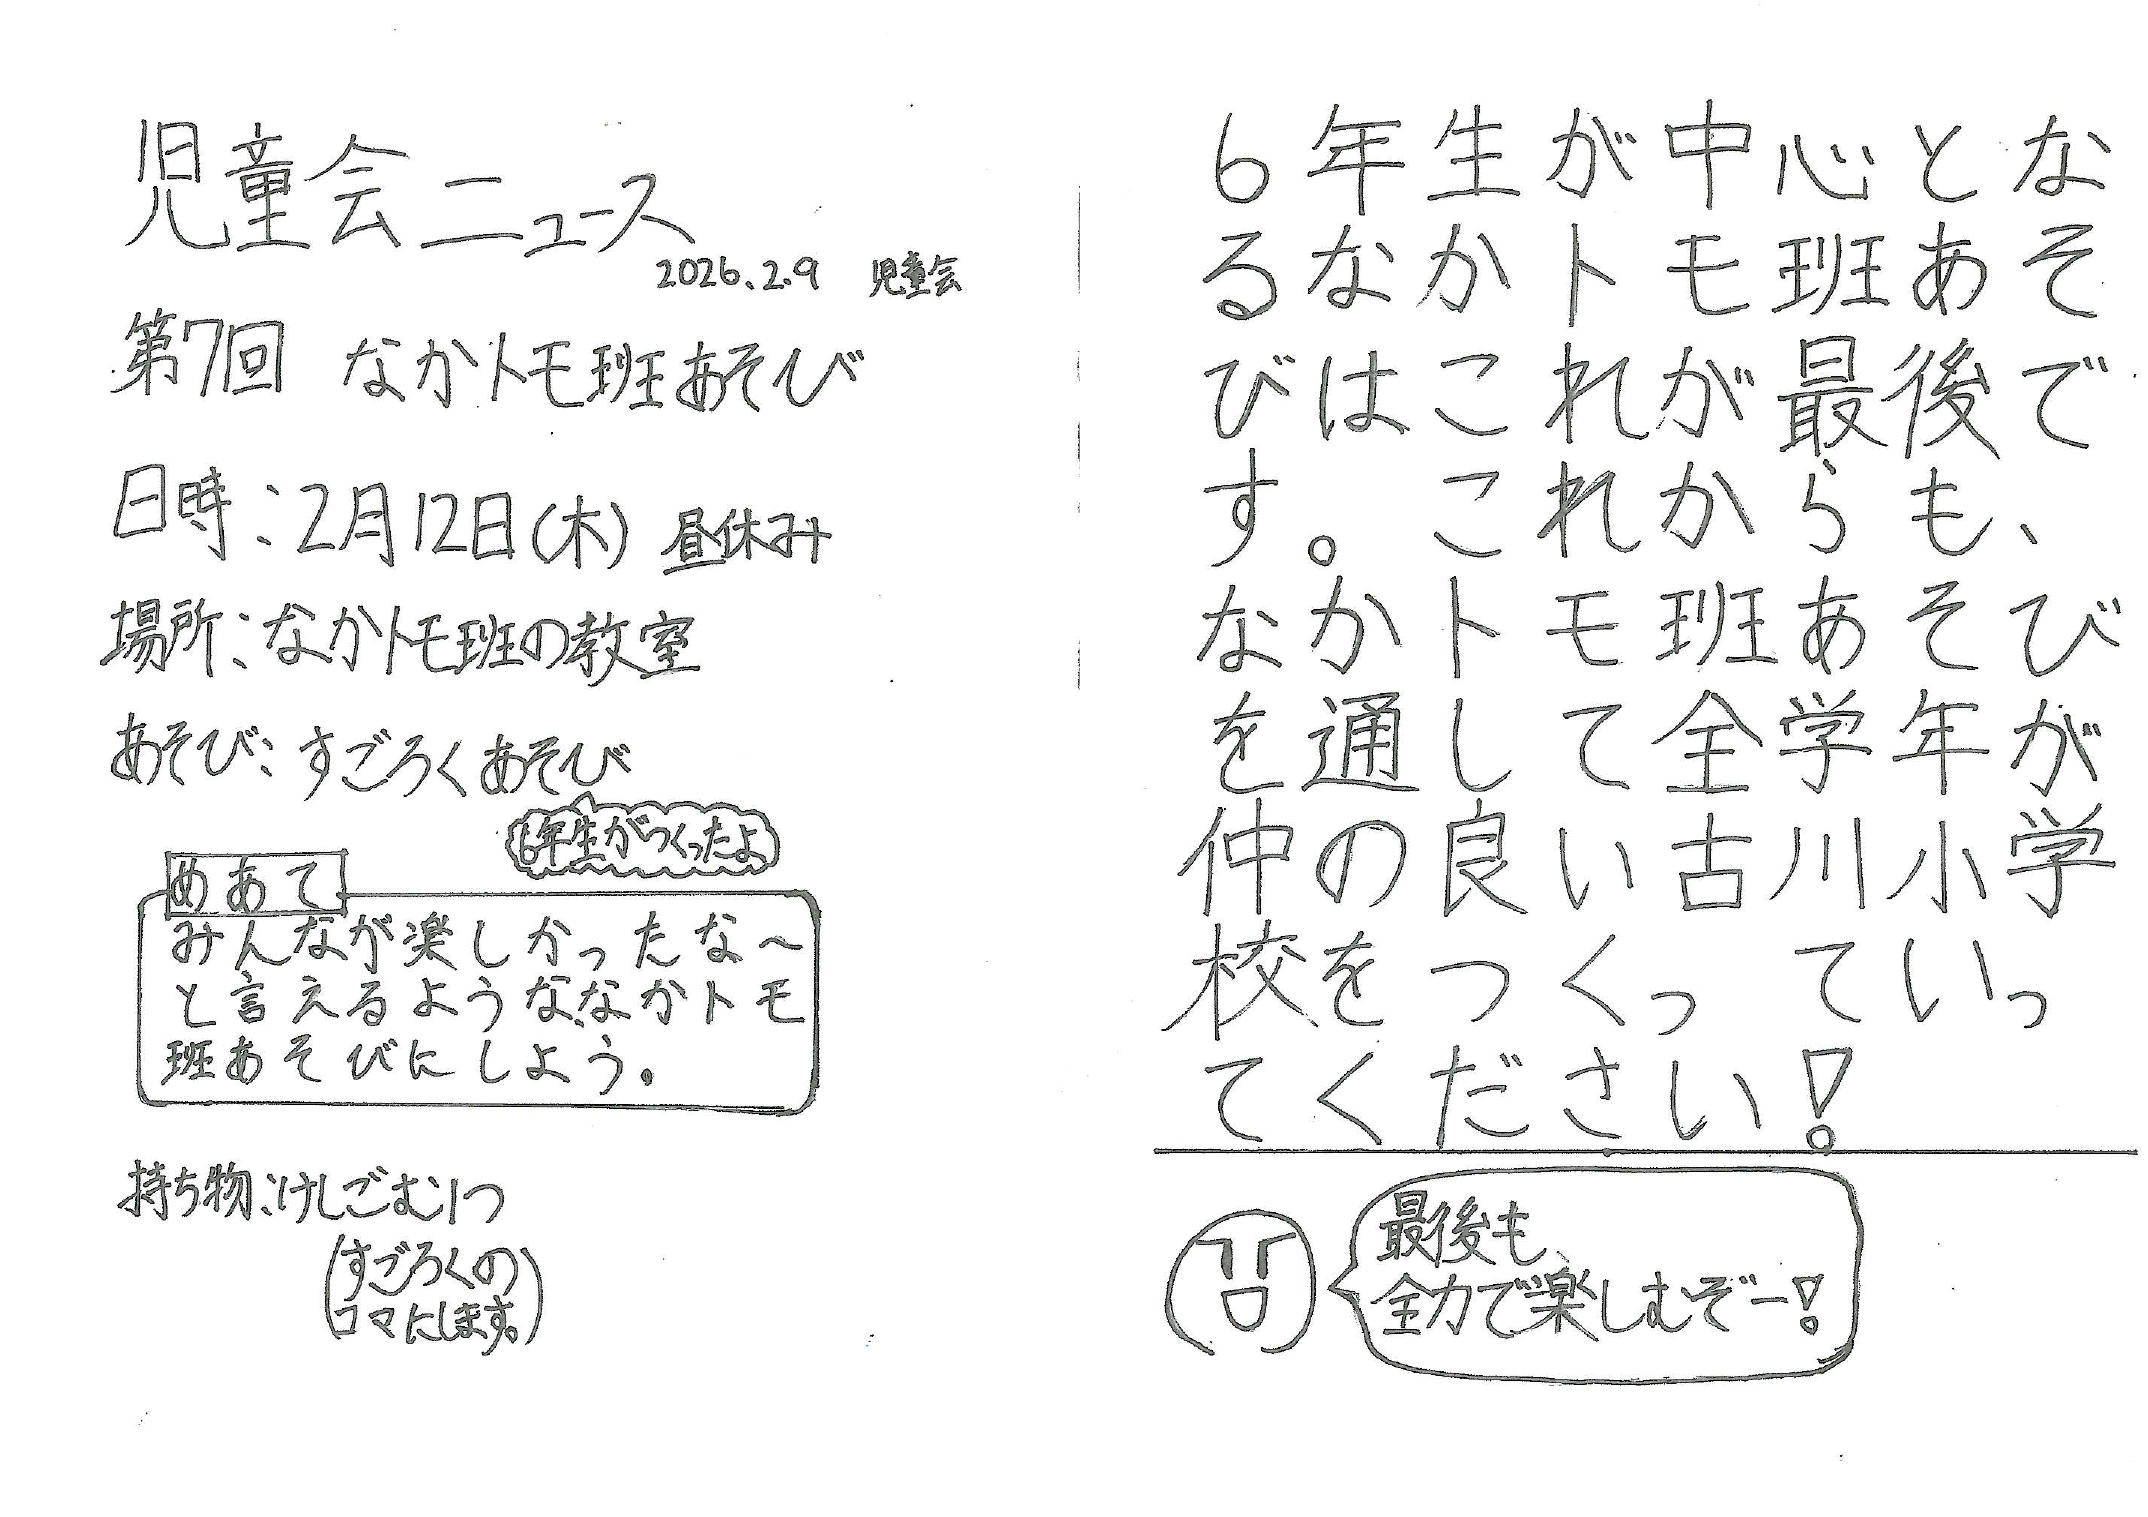 児童会ニュース
2026.2.9 児童会
第7回 なかトモ班あそび
日時:2月12日(木) 昼休み
場所:なかトモ班の教室
あそび:すごろくあそび
6年生がつくったよ
めあて
みんなが楽しかったな～
と言えるようななかトモ
班あそびにしよう。
持ち物:けしごむ1つ
(すごろくの
コマにします。)
6年生が中心とな
るなかトモ班あそ
びはこれが最後で
す。これからも、
なかトモ班あそび
を通して全学年が
仲の良い古川小学
校をつくっていっ
てください!
最後も、
全力で楽しむぞー!